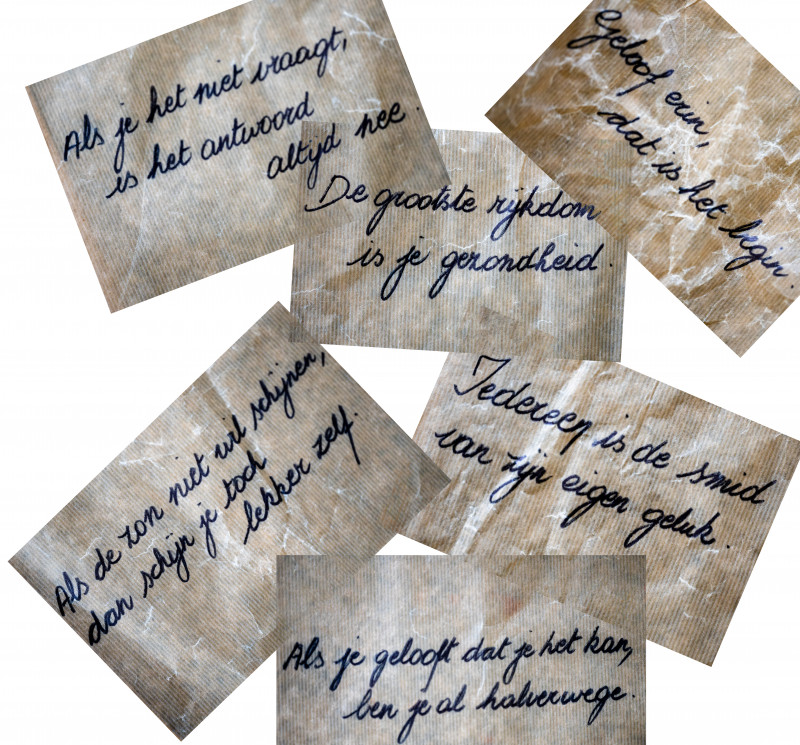 Als je het niet vraagt,
is het antwoord
altijd nee.
Geloof erin,
dat is het begin.
De grootste rijkdom
is je gezondheid.
Als de zon niet wil schijnen,
dan schijn je toch
lekker zelf.
Iedereen is de smid
van zijn eigen geluk.
Als je gelooft dat je het kan,
ben je al halverwege.